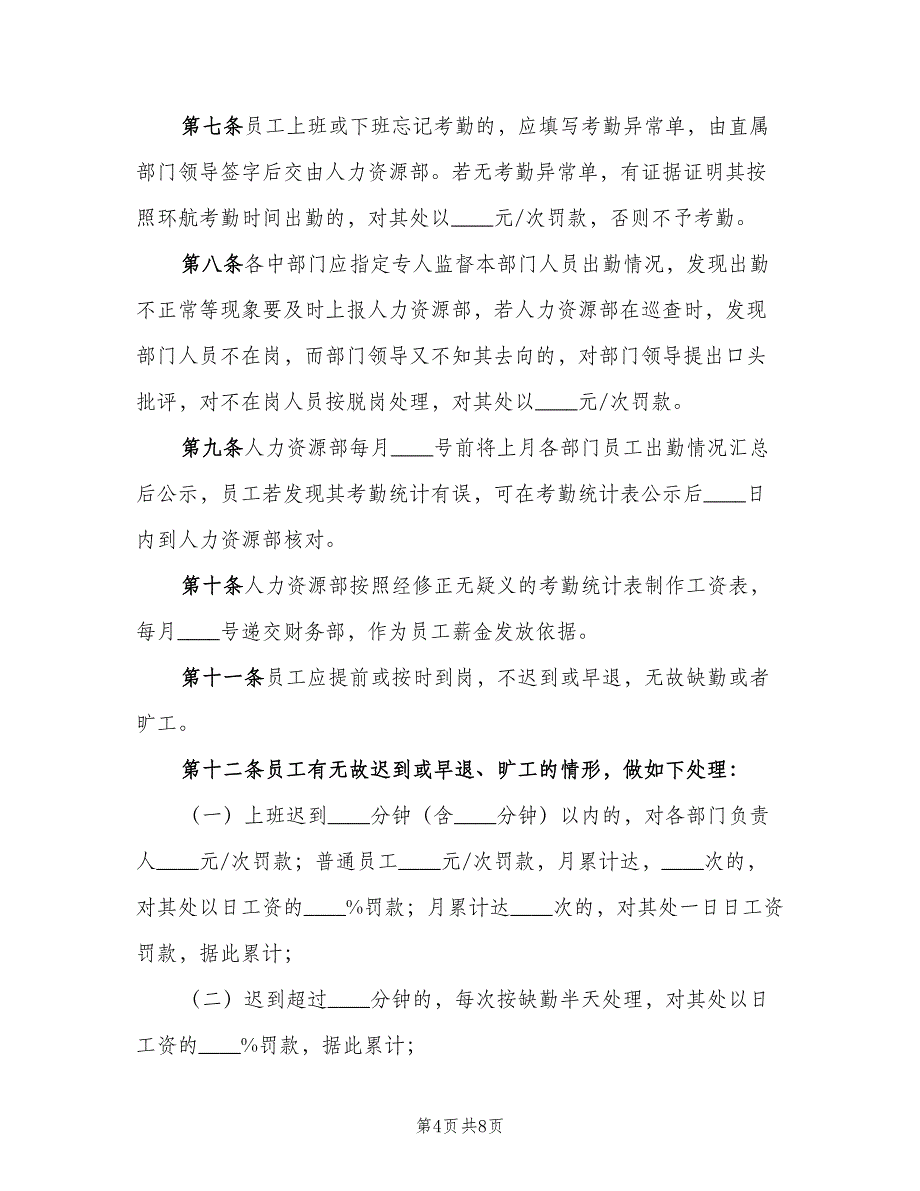 第七条员工上班或下班忘记考勤的，应填写考勤异常单，由直属
部门领导签字后交由人力资源部。若无考勤异常单，有证据证明其按
照环航考勤时间出勤的，对其处以____元/次罚款，否则不予考勤。
第八条各中部门应指定专人监督本部门人员出勤情况，发现出勤
不正常等现象要及时上报人力资源部，若人力资源部在巡查时，发现
部门人员不在岗，而部门领导又不知其去向的，对部门领导提出口头
批评，对不在岗人员按脱岗处理，对其处以____元/次罚款。
第九条人力资源部每月____号前将上月各部门员工出勤情况汇总
后公示，员工若发现其考勤统计有误，可在考勤统计表公示后____日
内到人力资源部核对。
第十条人力资源部按照经修正无疑义的考勤统计表制作工资表，
每月____号递交财务部，作为员工薪金发放依据。
第十一条员工应提前或按时到岗，不迟到或早退，无故缺勤或者
旷工。
第十二条员工有无故迟到或早退、旷工的情形，做如下处理：
（一）上班迟到____分钟（含____分钟）以内的，对各部门负责
人____元/次罚款；普通员工____元/次罚款，月累计达，____次的，
对其处以日工资的____%罚款；月累计达____次的，对其处一日日工资
罚款，据此累计；
（二）迟到超过____分钟的，每次按缺勤半天处理，对其处以日
工资的____%罚款，据此累计；
第4页共8页